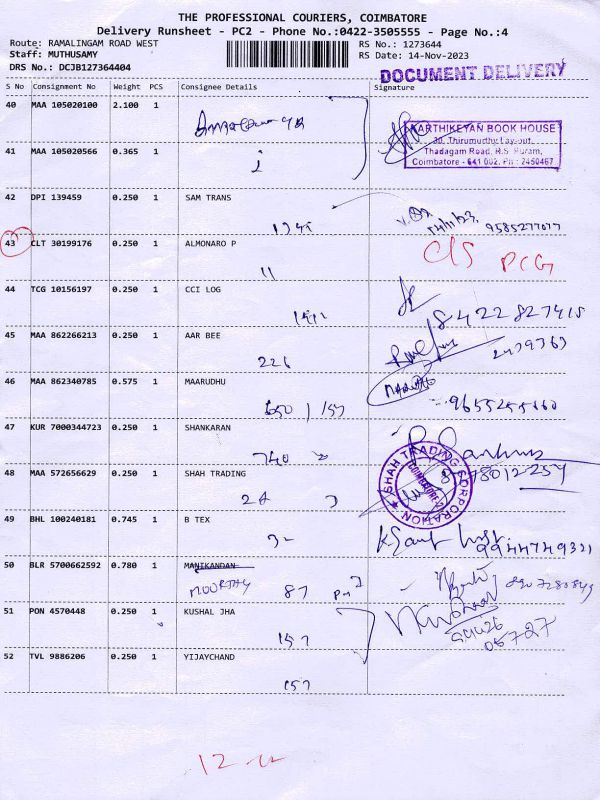 THE PROFESSIONAL COURIERS, COIMBATORE
Delivery Runsheet - PC2 - Phone No.:0422-3505555 - Page No.:4
Route: RAMALINGAM ROAD WEST
Staff: MUTHUSAMY
DRS No.: DCJB127364404
RS No.: 1273644
RS Date: 14-Nov-2023
DOCUMENT DELIVERY
S No Consignment No Weight PCS Consignee Details Signature
40 MAA 105020100 2.100 1
KARTHIKEYAN BOOK HOUSE
30, Thirumurthy Lay-out,
Thadagam Road, R.S. Puram,
Coimbatore - 641 002. Ph : 2450467
41 MAA 105020566 0.365 1
42 DPI 139459 0.250 1 SAM TRANS
14/11/23, 9585277077
43 CLT 30199176 0.250 1 ALMONARO P
11 C/S PCG
44 TCG 10156197 0.250 1 CCI LOG
8422827415
45 MAA 862266213 0.250 1 AAR BEE
226
46 MAA 862340785 0.575 1 MAARUDHU
650 / 157
47 KUR 7000344723 0.250 1 SHANKARAN
740
48 MAA 572656629 0.250 1 SHAH TRADING
SHAH TRADING CORPORATION
COIMBATORE
49 BHL 100240181 0.745 1 B TEX
9944749321
50 BLR 5700662592 0.780 1 MANIKANDAN
MOORTHY 87
51 PON 4570448 0.250 1 KUSHAL JHA
157
52 TVL 9886206 0.250 1 YIJAYCHAND
157